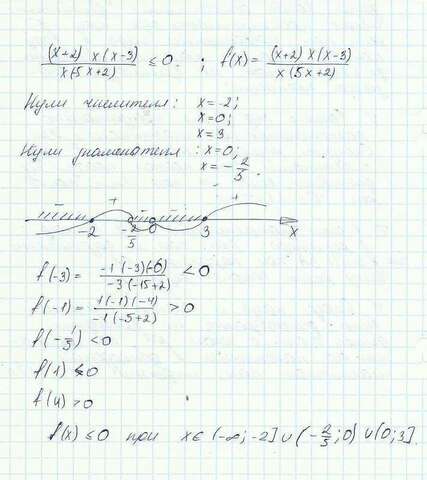 (x+2) x (x-3) / x(5x+2) ≤ 0. ; f(x) = (x+2) x (x-3) / x(5x+2)
Нули числителя: x = -2;
x = 0;
x = 3
Нули знаменателя : x = 0;
x = -2/5.
- + - - + 
-2 -2/5 0 3 x
f(-3) = -1(-3)(-6) / -3(-15+2) < 0
f(-1) = 1(-1)(-4) / -1(-5+2) > 0
f(-1/3) < 0
f(1) < 0
f(4) > 0
f(x) ≤ 0 при x ∈ (-∞; -2] ∪ (-2/5; 0) ∪ (0; 3]